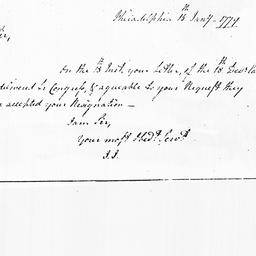 Philadelphia 18th Jany. 1779
Sir,
On the 18th Inst. your Letter, of the 18th Decr. la
dressed to Congress, & agreeable to your Request they
accepted your Resignation —
I am Sir,
Your most Obedt. Servt.
J.J.